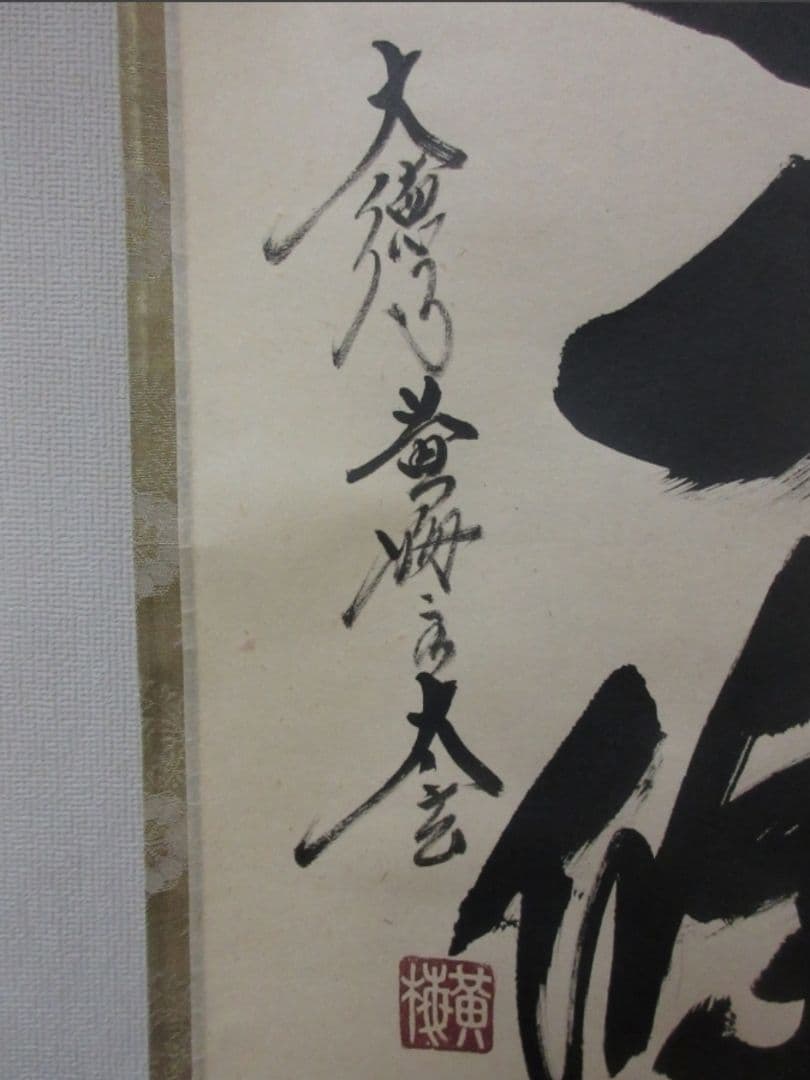 大徳 黄梅主 太玄
黄梅